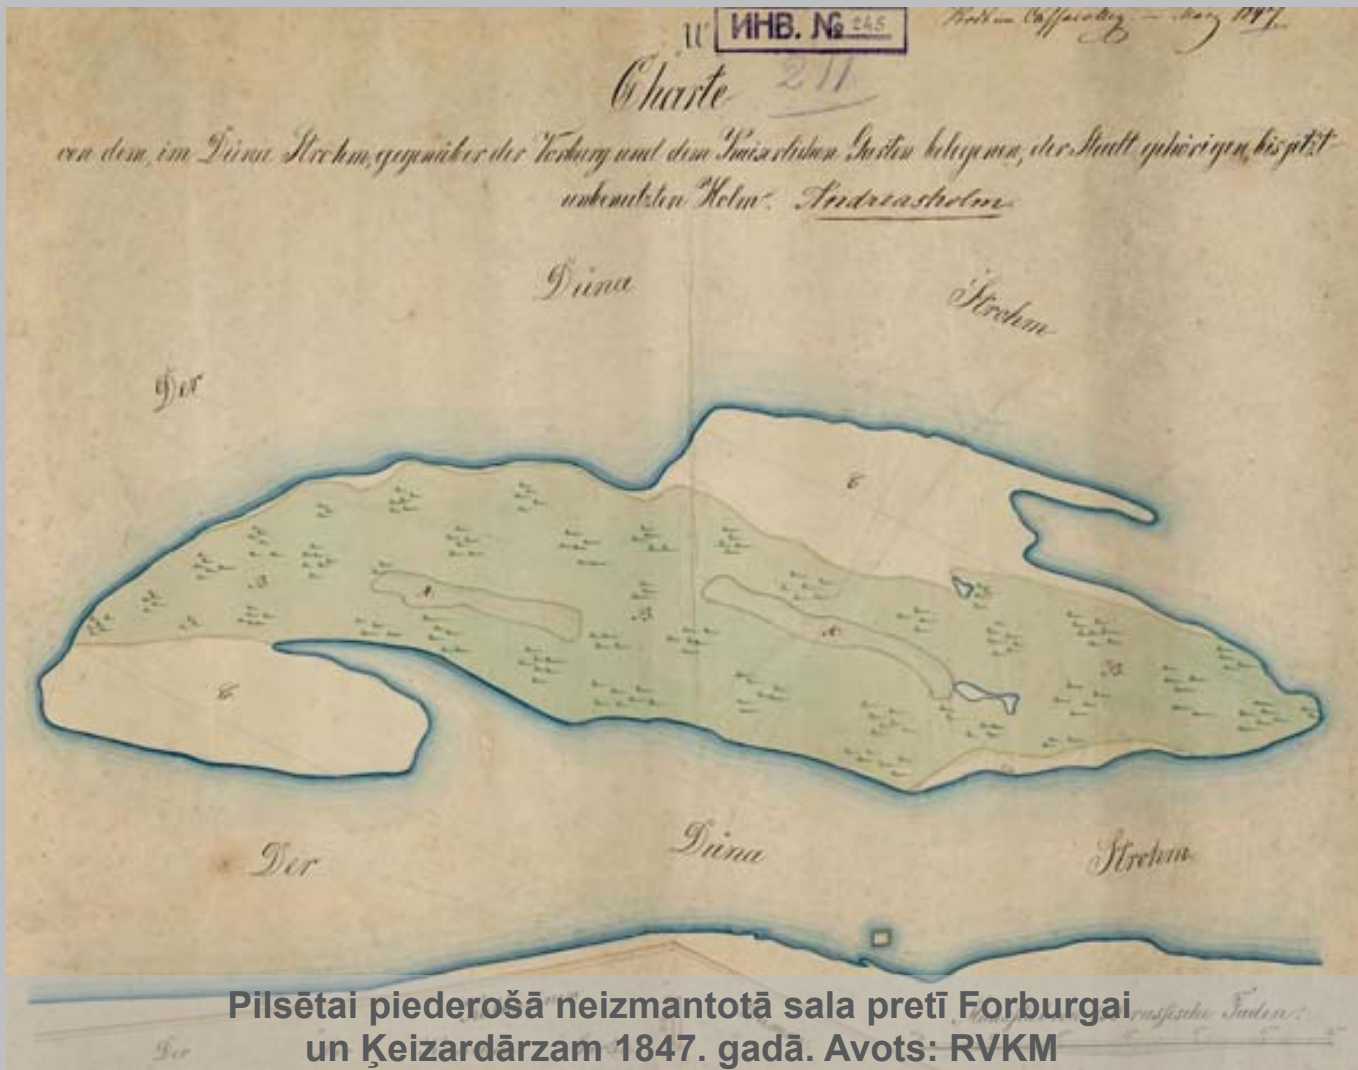 ИНВ. № 245
211
Charte
von dem, im Düna Strohm, gegenüber der Vorburg und dem Kaiserlichen Garten belegenen, der Stadt gehörigen, bis jetzt
unbenutzten Holm. Andreasholm
Düna
Strohm
Der
C
A
B
B
A
B
C
Der
Düna
Strohm
russische Faden.
Der
Pilsētai piederošā neizmantotā sala pretī Forburgai
un Ķeizardārzam 1847. gadā. Avots: RVKM